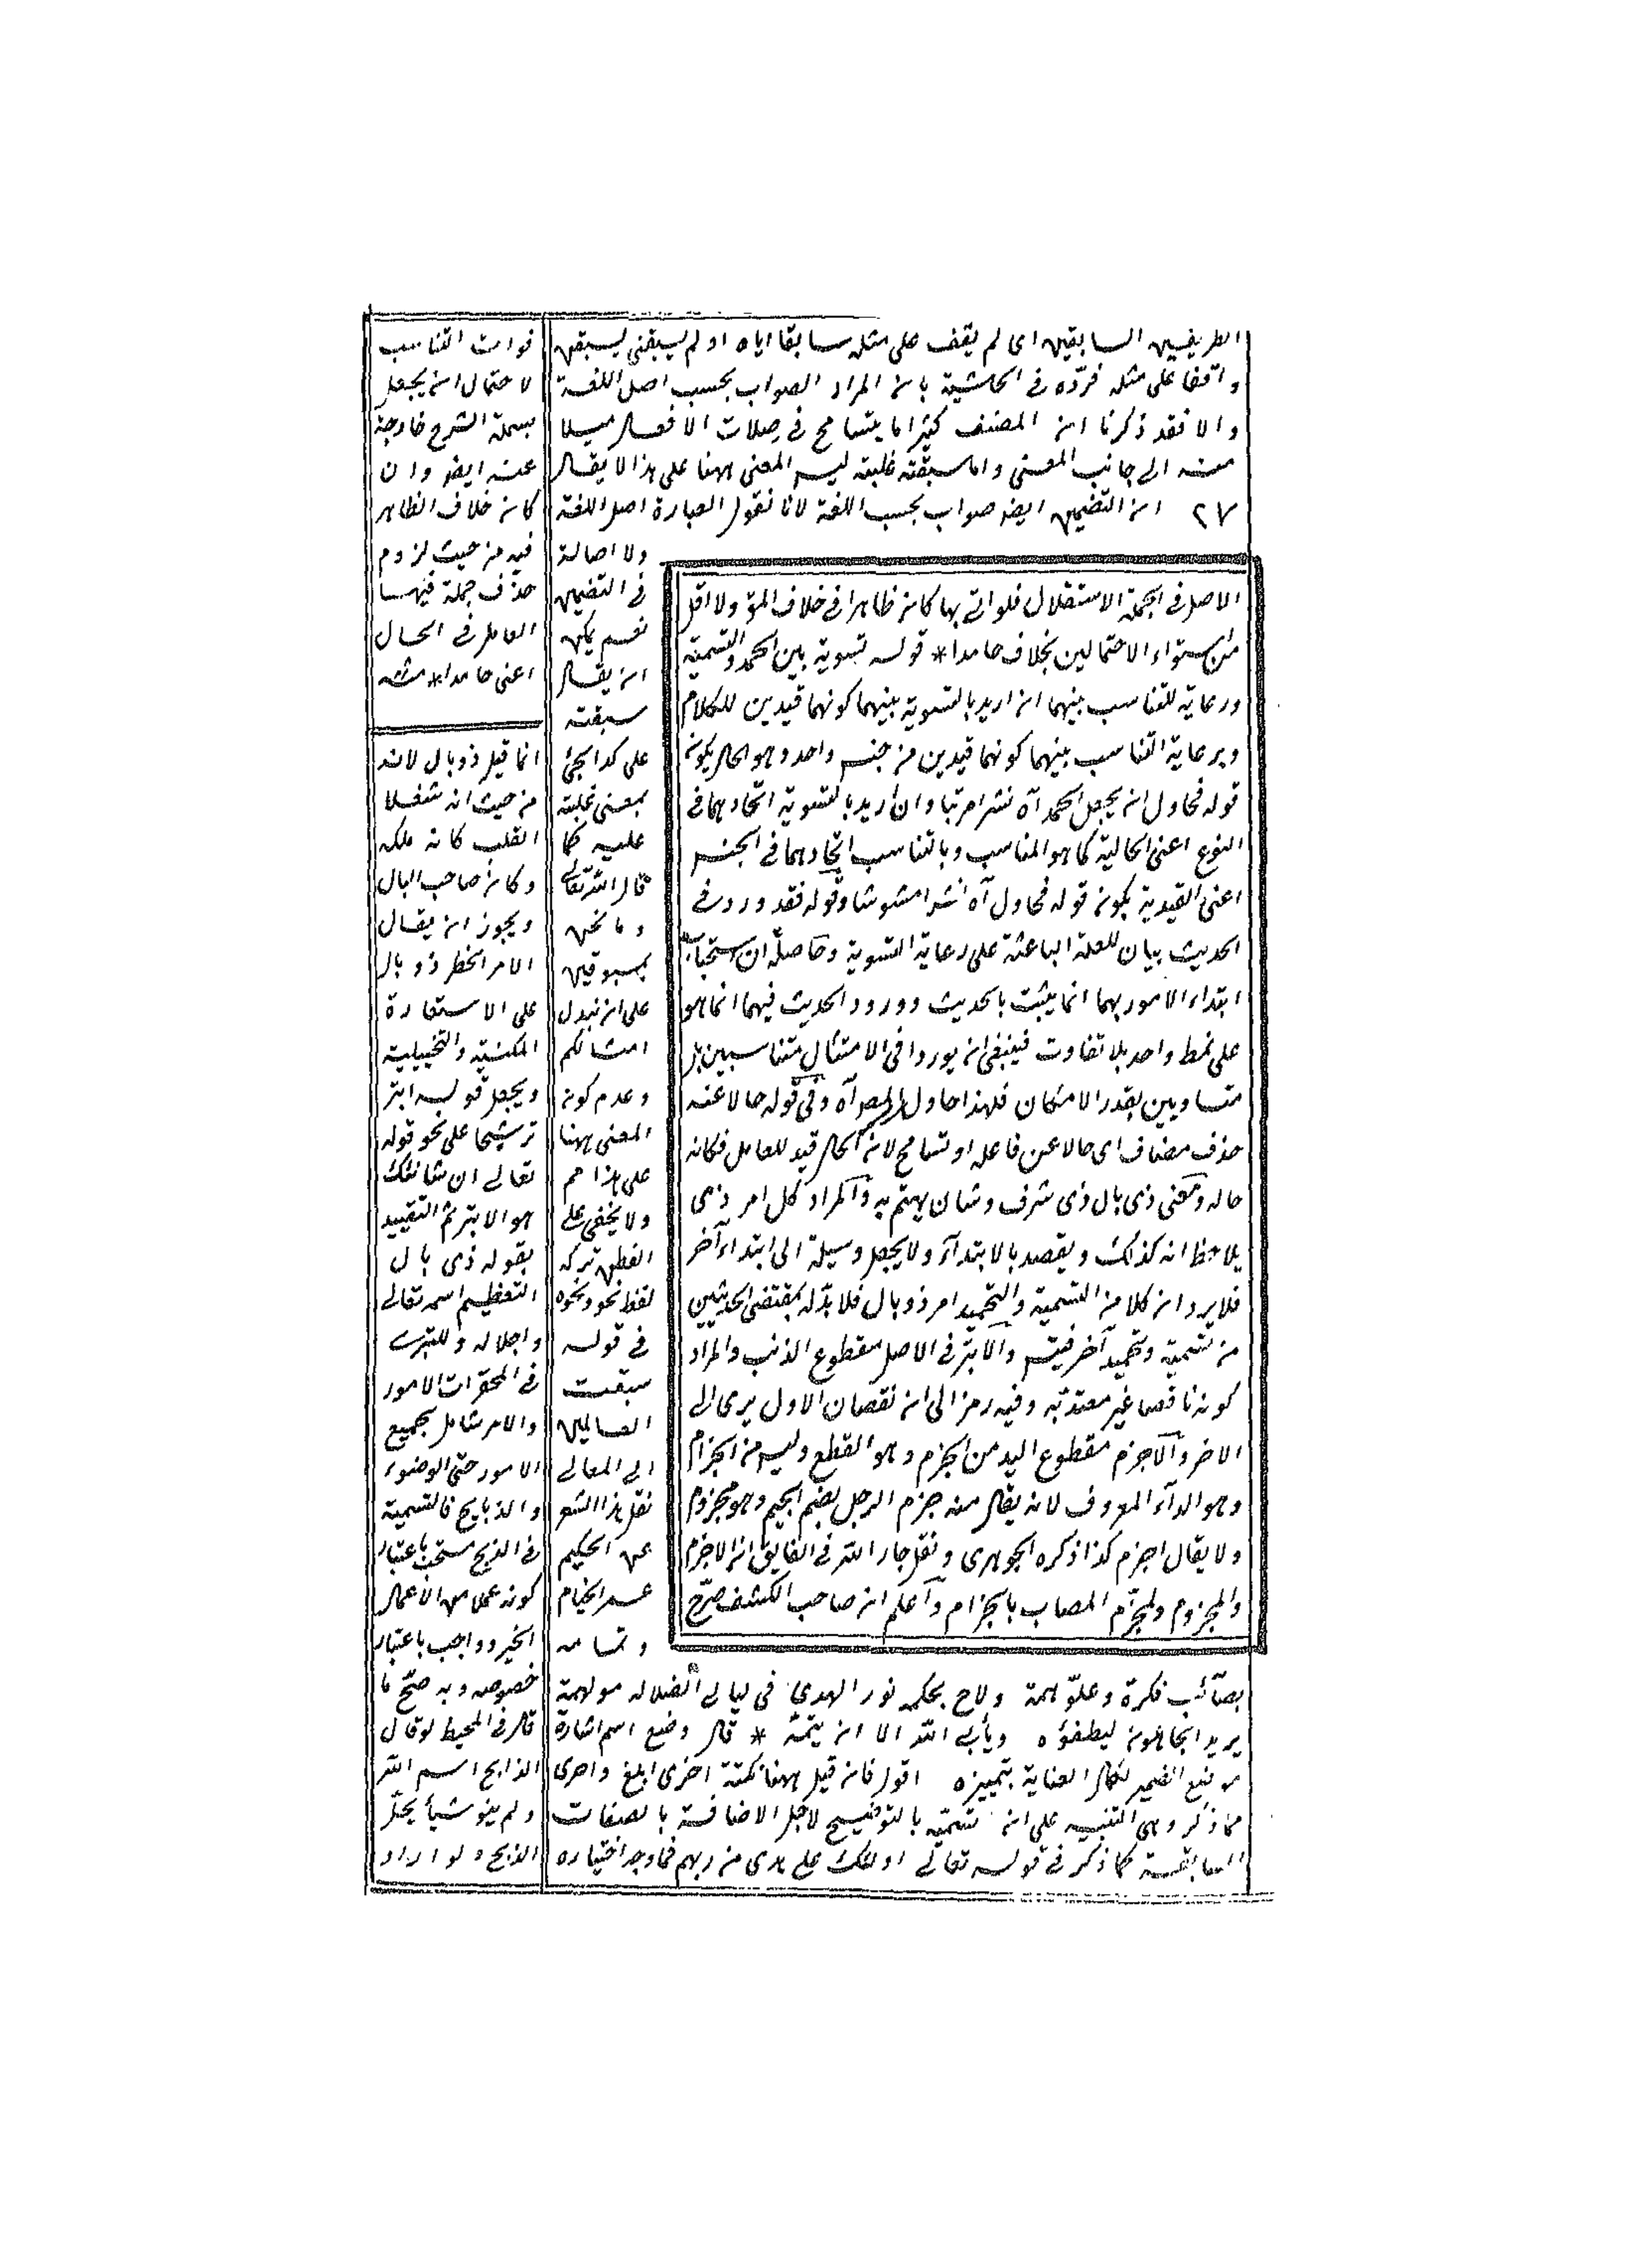 الطريفين السابقين اى لم يقف على مثله سابقا اياه او لم يسبقنى ليسبقن
واقفا على مثله فردّه فى الحاشية بان المراد الصواب بحسب اصل اللغة
والا فقد ذكرنا ان المصنف كثيرا ما يتسامح فى صلات الافعال ميلا
منه الى جانب المعنى واما سبقته غلبته ليس المعنى ههنا على هذا لا يقال
٢٧ ان التضمين ايضا صواب بحسب اللغة لانا نقول العبارة اصل اللغة
ولا اصالة
فى التضمين
نعم يمكن
ان يقال
سبقته
على كذا يجئ
بمعنى غلبته
عليه كما
قال الله تعالى
وما نحن
بمسبوقين
على ان نبدل
امثالكم
وعدم كون
المعنى ههنا
على هذا مم
ولا يخفى على
الفطن تركه
لفظ نحو ونحوه
فى قوله
سبقت
العالمين
الى المعالى
نقل هذا الشعر
عن الحكيم
عمر الخيام
وتمامه
بصائب فكرة وعلوّ همة ولاح بحكمه نور الهدى فى ليالى الضلاله مولهمة
يريد الجاهلون ليطفؤه ويأبى الله الا ان يتمّه * قال وضع اسم اشارة
موضع الضمير لكمال العناية بتمييزه اقول فان قيل ههنا نكتة اخرى ابلغ واحرى
مما ذكر وهى التنبيه على ان تسميته بالتوضيح لاجل الاضافة بالصفات
السابقة كما ذكر فى قوله تعالى اولئك على هدى من ربهم فما وجه اختياره
الاصل فى الجملة الاستقلال فلو اتى بها كان ظاهرا فى خلاف المق ولا اقل
من استواء الاحتمالين بخلاف حامدا * قوله تسوية بين الحمد والتسمية
ورعاية للتناسب بينهما ان اريد بالتسوية بينهما كونهما قيدين للكلام
وبرعاية التناسب بينهما كونهما قيدين من جنس واحد وهو الحال يكون
قوله فحاول ان يجعل الحمد آه نشرا مرتبا وان اريد بالتسوية اتحادهما فى
النوع اعنى الحالية كما هو المناسب وبالتناسب اتحادهما فى الجنس
اعنى القيدية يكون قوله فحاول آه نشرا مشوشا وقوله فقد ورد فى
الحديث بيان للعلة الباعثة على رعاية التسوية وحاصله ان استحباب
ابتداء الامور بهما انما يثبت بالحديث وورود الحديث فيهما انما هو
على نمط واحد بلا تفاوت فينبغى ان يوردا فى الامتثال متناسبين بل
متساويين بقدر الامكان فلهذا حاول المص آه وفى قوله حالا عنه
حذف مضاف اى حالا عن فاعله او تسامح لان الحال قيد للعامل فكانه
حاله ومعنى ذى بال ذى شرف وشان يهتم به والمراد كل امر ذى
يلاحظ انه كذلك ويقصد بالابتداء ولا يجعل وسيلة الى ابتداء آخر
فلا يرد ان كلا من التسمية والتحميد امر ذو بال فلا بدّ له بمقتضى الحديثين
من تسمية وتحميد آخر فيتس والابتر فى الاصل مقطوع الذنب والمراد
كونه ناقصا غير معتدّ به وفيه رمز الى ان نقصان الاول يرى الى
الاخر والاجزم مقطوع اليد من الجزم وهو القطع وليس من الجزام
وهو الداء المعروف لانه يقال منه جزم الرجل بضم الجيم وهو مجزوم
ولا يقال اجزم كذا ذكره الجوهرى ونقل جار الله فى الفايق ان الاجزم
والمجزوم والمجزّم المصاب بالجزام واعلم ان صاحب الكشف صرّح
فوات التناسب
لاحتمال ان يجعل
بسملة الشرح خارجة
عنه ايضا وان
كان خلاف الظاهر
فيه من حيث لزوم
حذف جملة فيها
العامل فى الحال
اعنى حامدا * منه
انما قيل ذو بال لانه
من حيث انه شغلا
القلب كانه ملكه
وكان صاحب البال
ويجوز ان يقال
الامر الخطر ذو بال
على الاستعارة
المكنية والتخييلية
ويجعل قوله ابتر
ترشيحا على نحو قوله
تعالى ان شانئك
هو الابتر ثم التقييد
بقوله ذى بال
التعظيم اسمه تعالى
واجلاله وللتبرى
فى المحقرات الامور
والامر شامل بجميع
الامور حتى الوضوء
والذبايح فالتسمية
فى الذبح مستحب باعتبار
كونه عملا من الاعمال
الخير وواجب باعتبار
خصوصه وبه صحّ ما
قال فى المحيط لو قال
الذابح اسم الله
ولم ينو شيأ يحلّ
الذبح ولو اراد